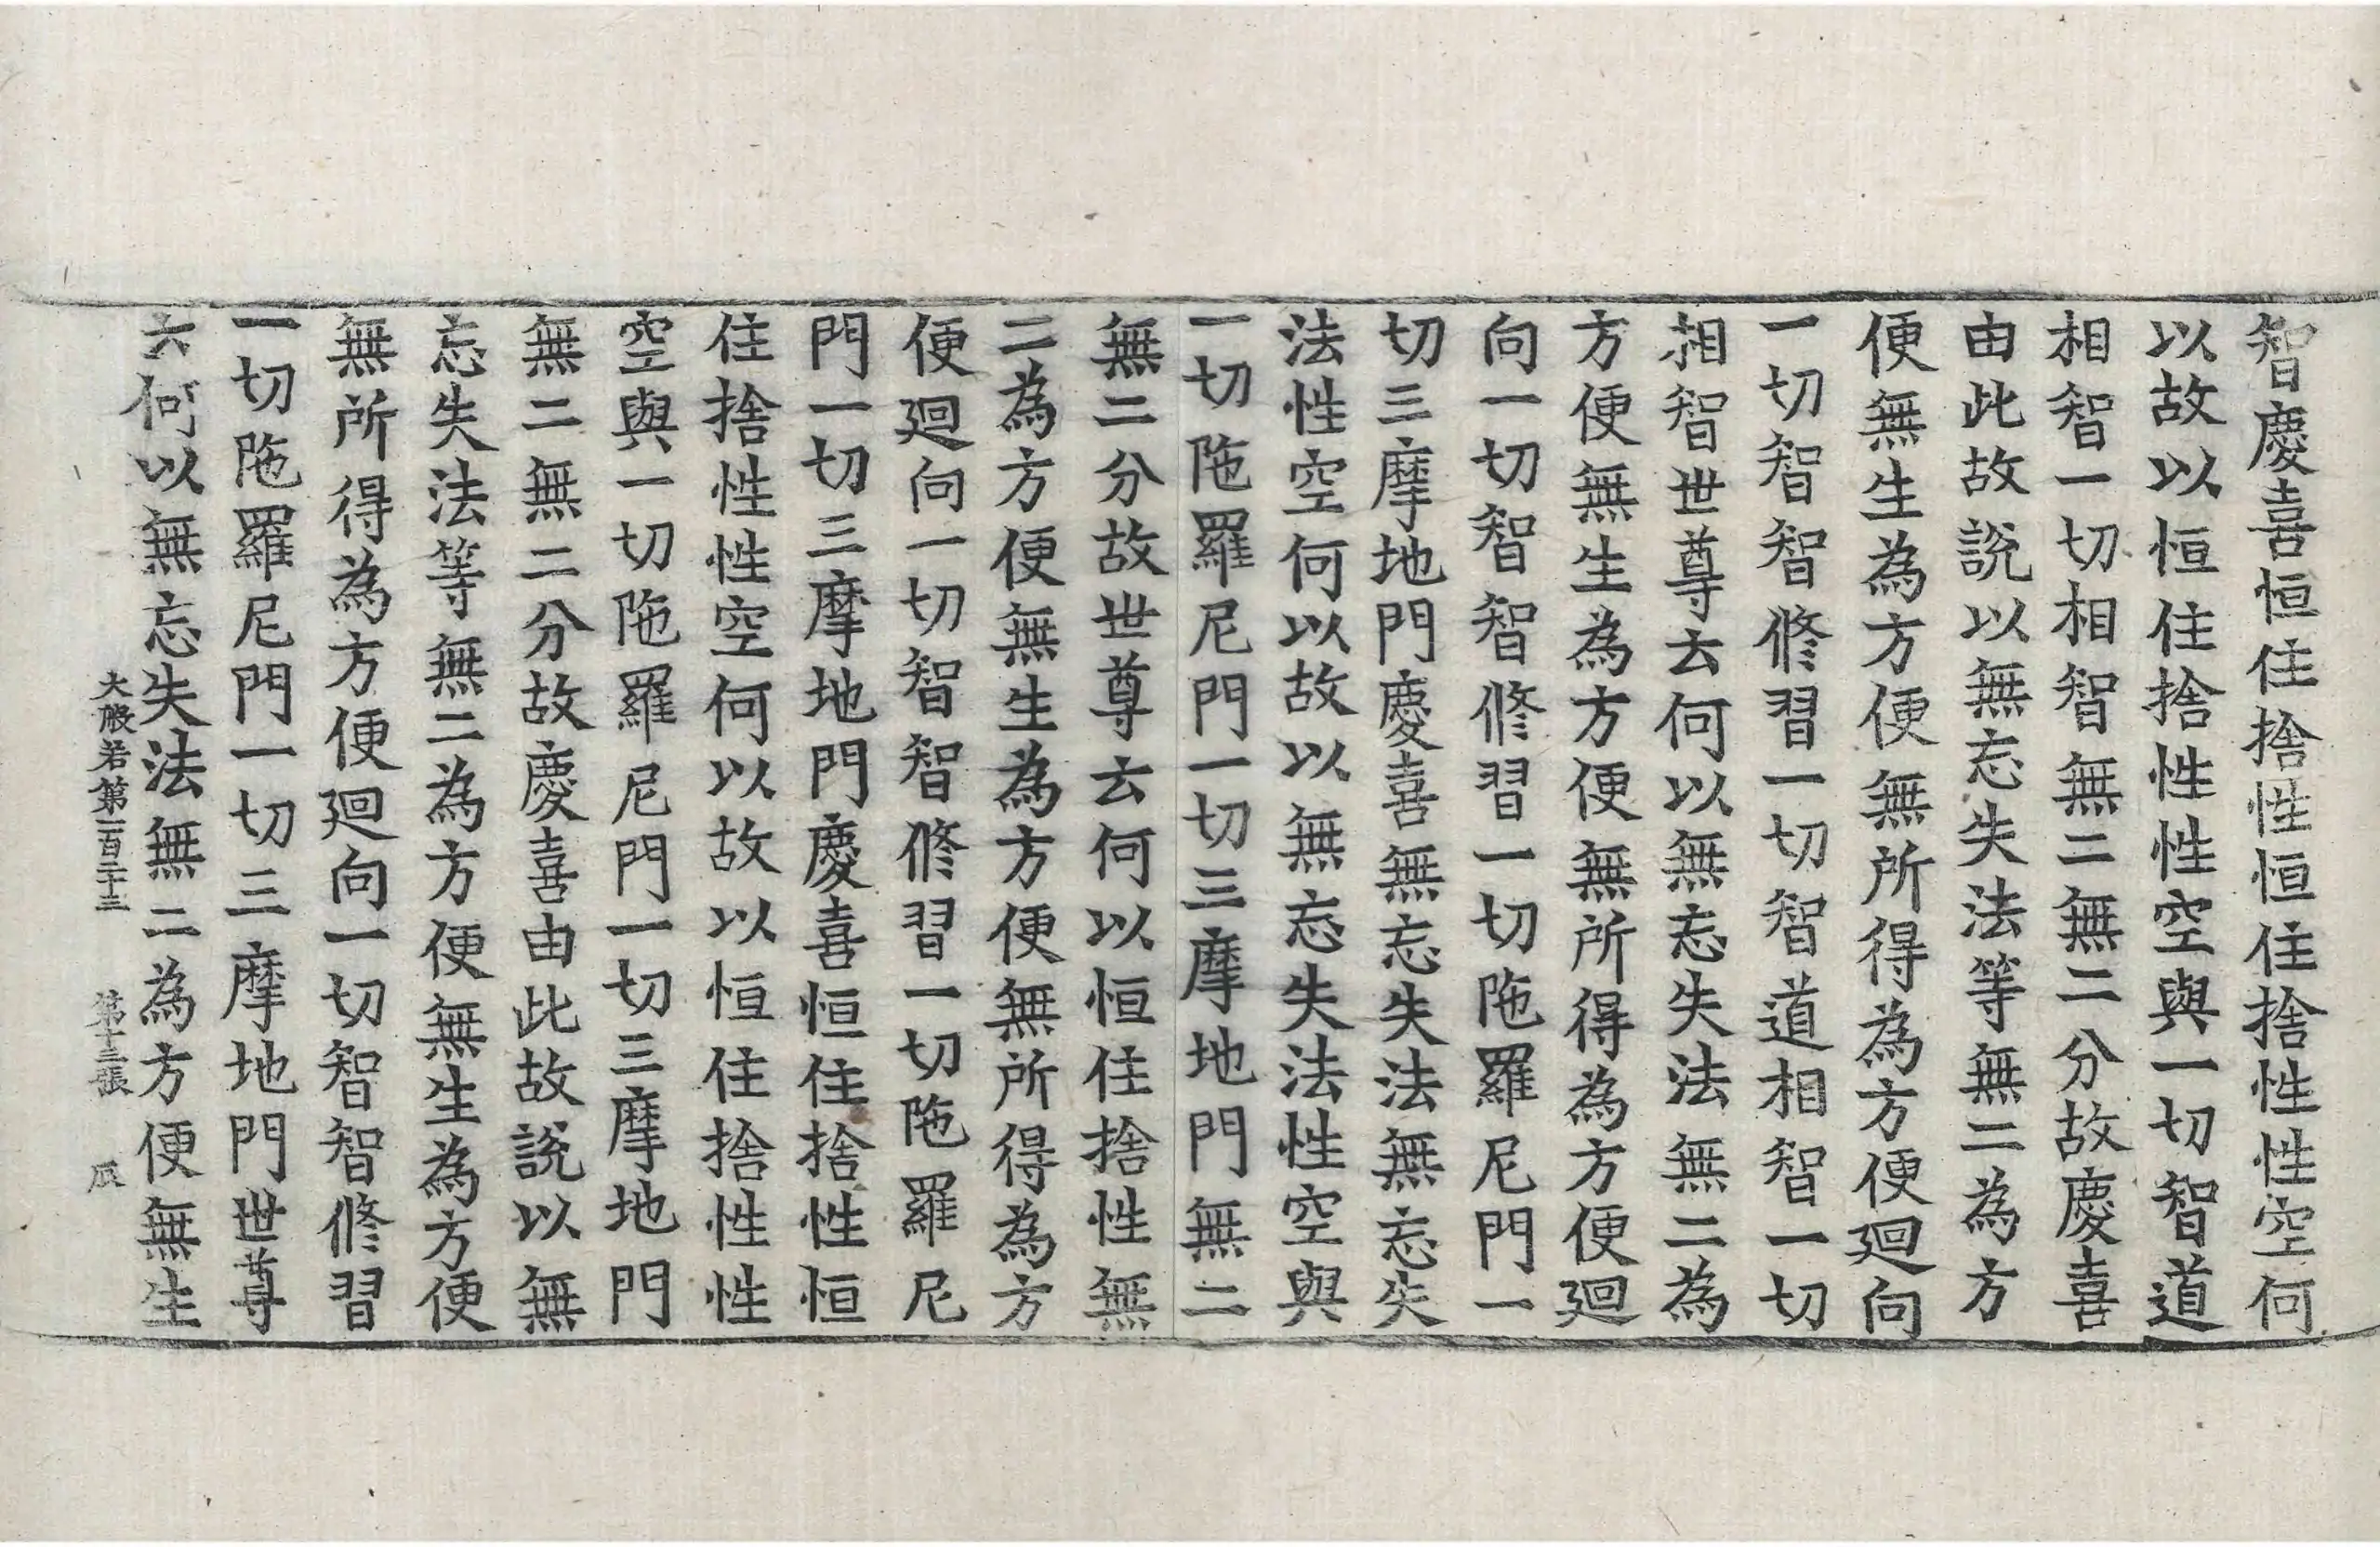 智慶喜恒住捨性恒住捨性性空何
以故以恒住捨性性空與一切智道
相智一切相智無二無二分故慶喜
由此故說以無忘失法等無二為方
便無生為方便無所得為方便迴向
一切智智修習一切智道相智一切
相智世尊云何以無忘失法無二為
方便無生為方便無所得為方便迴
向一切智智修習一切陁羅尼門一
切三摩地門慶喜無忘失法無忘失
法性空何以故以無忘失法性空與
一切陁羅尼門一切三摩地門無二
無二分故世尊云何以恒住捨性無
二為方便無生為方便無所得為方
便迴向一切智智修習一切陁羅尼
門一切三摩地門慶喜恒住捨性恒
住捨性性空何以故以恒住捨性性
空與一切陁羅尼門一切三摩地門
無二無二分故慶喜由此故說以無
忘失法等無二為方便無生為方便
無所得為方便迴向一切智智修習
一切陁羅尼門一切三摩地門世尊
云何以無忘失法無二為方便無生
大般若第一百二十三 第十三張 辰